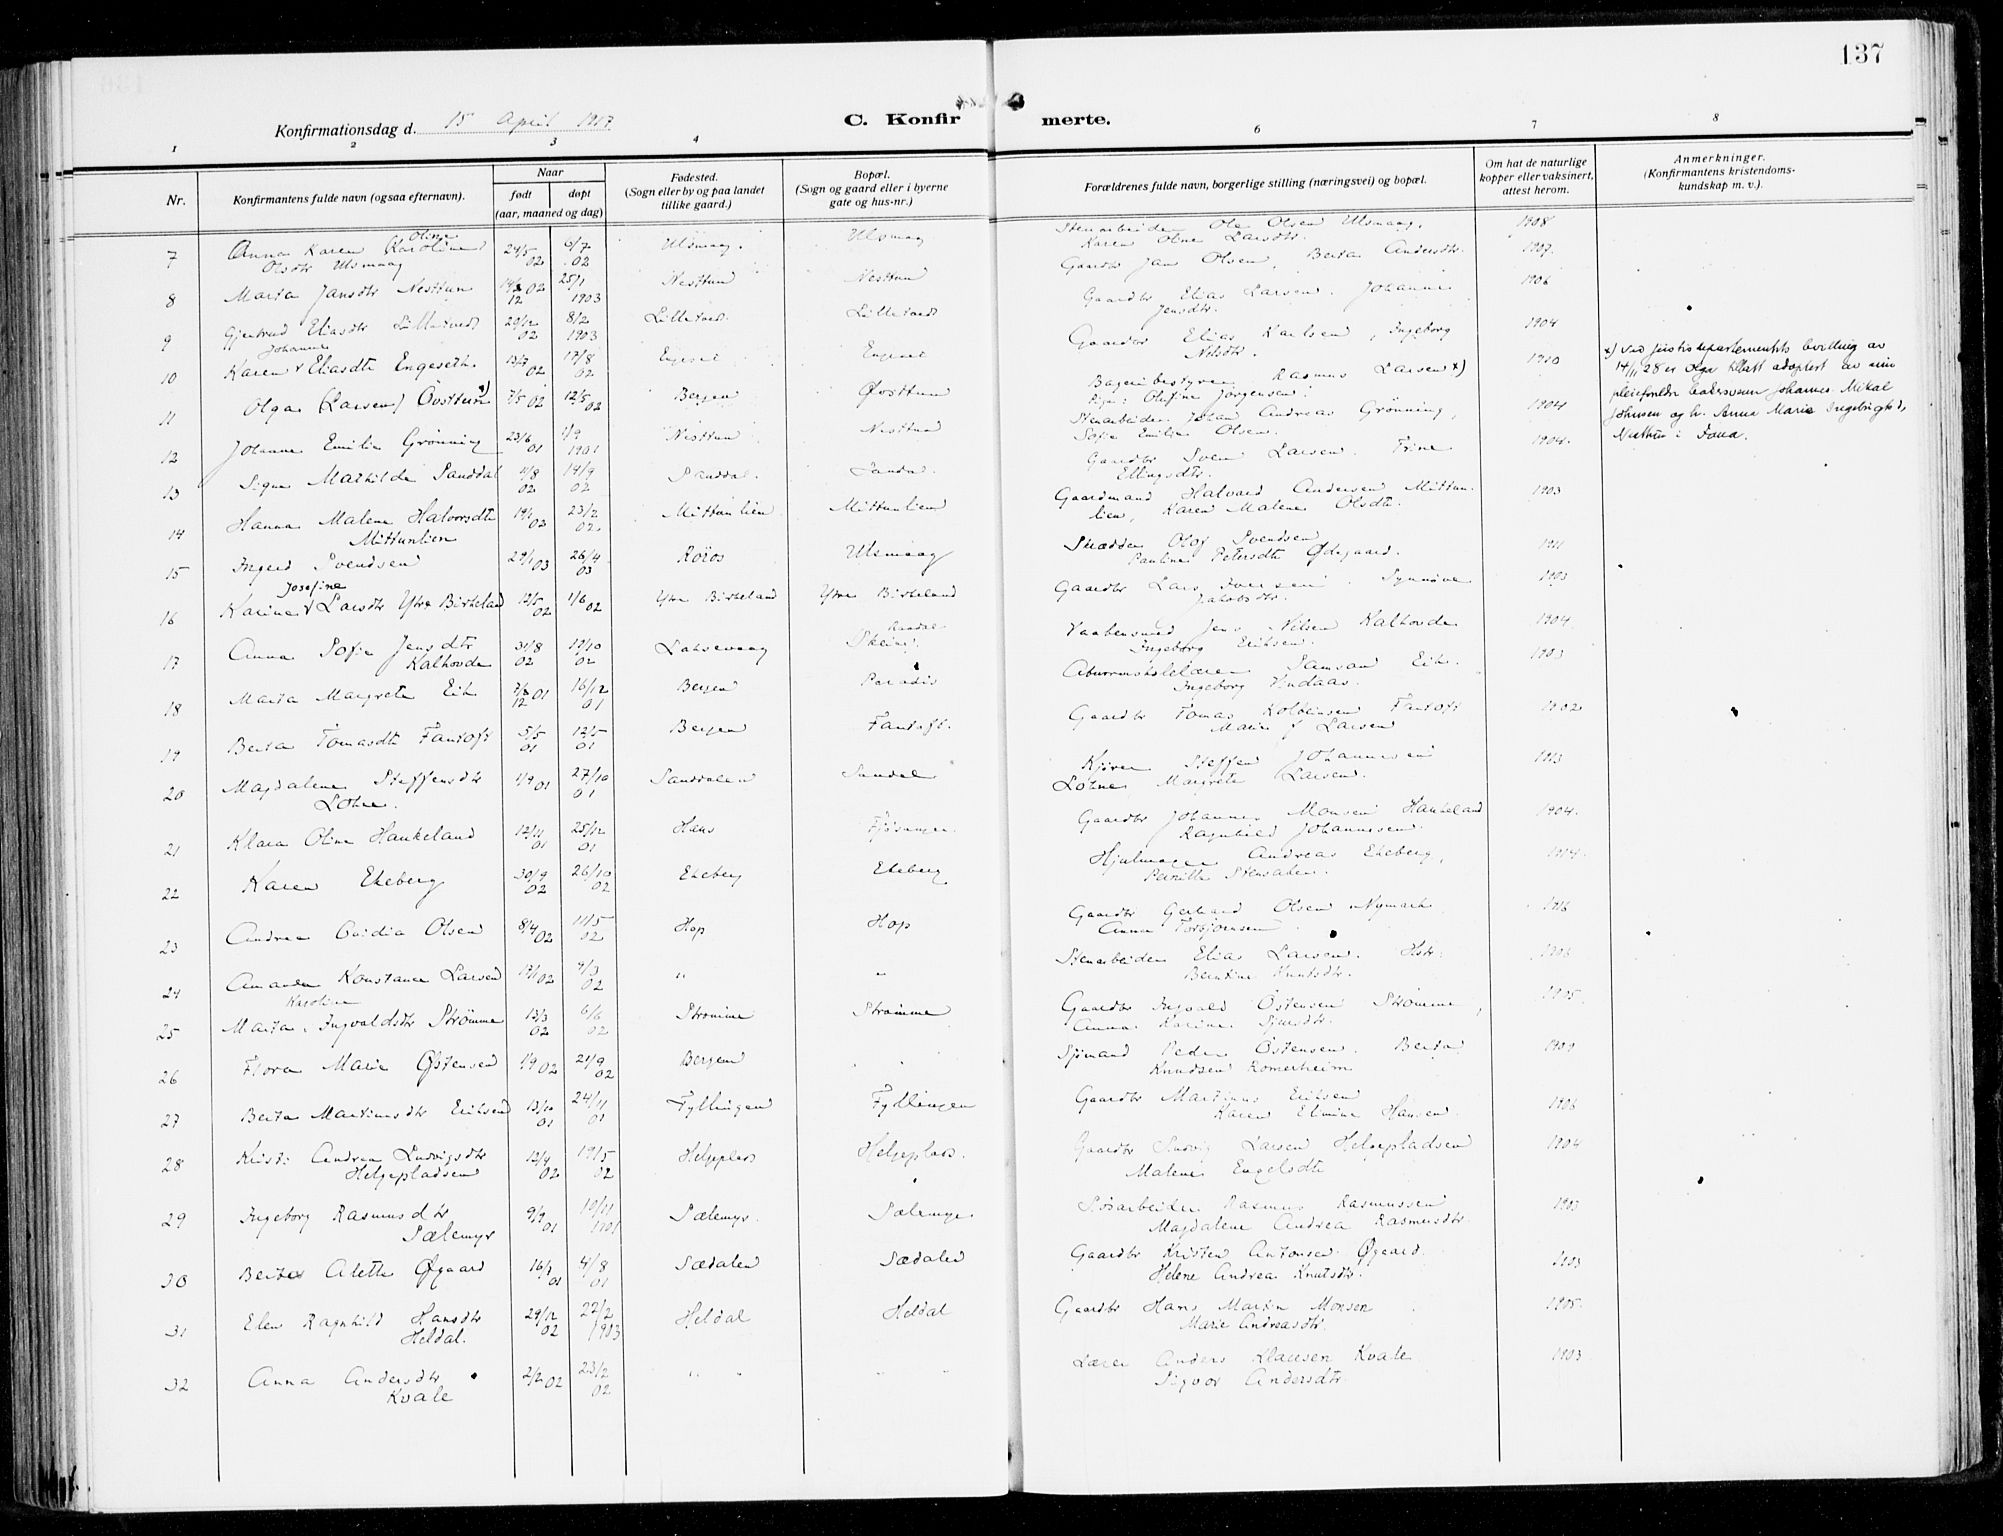 137
Konfirmationsdag d. 15 April 1917
C. Konfirmerte.
1 2 3 4 6 7 8
Nr.
Konfirmantens fulde navn (ogsaa efternavn).
Naar
født
døpt
(aar, maaned og dag)
Fødested.
(Sogn eller by og paa landet
tillike gaard.)
Bopæl.
(Sogn og gaard eller i byerne
gate og hus-nr.)
Forældrenes fulde navn, borgerlige stilling (næringsvei) og bopæl.
Om hat de naturlige
kopper eller vaksinert,
attest herom.
Anmerkninger.
(Konfirmantens kristendoms-
kundskap m. v.).
7 Anna Karen Karoline Oline 24/5 02 6/7 02 Ulsmaag. Ulsmaag Stenarbeider Ole Olsen Ulsmaag. 1908
Olsdtr Ulsmaag Karen Oline Larsdtr.
8 Marta Jansdtr Nesttun 02 25/1 1903 Nesttun Nesttun Gaardbr Jan Olsen, Berta Andersdtr. 1907.
9 Gjertrud Eliasdtr Lilletvedt 29/12 02 8/2 1903 Lilletvedt Lilletvedt Gaardbr Elias Larsen. Johanne 1906
Jensdtr.
10 Karen Johanne Eliasdtr Engeseth 13/7 02 17/8 02 Engeset Engeset Gaardbr Elias Karlsen, Ingeborg 1904
Nilsdtr.
11 Olga (Larsen) Øvsttun x) 7/5 02 12/5 02 Bergen Øvsttun Bageribestyrer Rasmus Larsen x) 1910
Pige: Olefine Jørgensen.
x) Ved justisdepartementets bevilling av
14/11 28 er Olga blatt adoptert av sine
pleieforeldre Johannes Mikal
Johnsen og h. Anna Marie Ingebrigtsd,
Nesttun i Fana.
12 Johanne Emilie Grønning 23/6 01 1/9 1901 Nesttun Nesttun Stenarbeider Johan Andreas Grønning, 1904
Sofie Emilie Olsen.
13 Signe Mathilde Sanddal 11/8 02 14/9 02 Sanddal. Sandal. Gaardbr Sven Larsen. Trine 1904.
Ellingsdtr.
14 Hanna Malene Halvorsdtr 19/1 02 23/2 02. Mittunlien Mittunlien Gaardmand Halvard Andersen Mittun- 1903
Mittunlien lien, Karen Malene Olsdtr.
15 Ingerd Svendsen 29/1 03 26/4 03 Røros Ulsmaag Skrædder Olaf Svendsen 1911
Pauline Petersdtr Ødegaard.
16 Karine Josefine Larsdtr Ytre Birkeland 12/5 02 1/6 02 Ytre Birkeland Ytre Birkeland Gaardbr Lars Iversen. Synnøve 1903
Jakobsdtr.
17 Anna Sofie Jensdtr 31/8 02 19/10 02 Laksevaag Vaabensmed Jens Nilsen Kalhovde 1904
Kalhovde Ingeborg Eriksen.
18 Marta Margrete Eik 01 16/12 01 Bergen Paradis Samson Eik. 1903
Ingeborg Vindaas.
19 Berta Tomasdtr Fantoft 5/5 01 12/5 01 Bergen Fantoft. Gaardbr Tomas Kolbeinsen Fantoft 1902
Marie f Larsen
20 Magdalene Steffensdtr 1/9 01 27/10 01 Sanddalen Sandal Kjører Steffen Johannesen 1913
Løhne. Løhne, Margrete Larsen.
21 Klara Oline Haukeland 12/11 01 25/12 01 Hans Fjøsanger. Gaardbr Johannes Monsen Haukeland 1904.
Ragnhild Johannessen.
22 Karen Ekeberg 30/9 02 26/10 02 Ekeberg Ekeberg Hjulmager Andreas Ekeberg, 1914.
Pernille Stensaker.
23 Andrea Ovidia Olsen 8/4 02 11/5 02 Hop Hop Gaardbr Gerhard Olsen Nymark 1916
Anna Torbjørnsen
24 Amanda Konstance Larsen 17/1 02 02 " " Stenarbeider Elias Larsen. 1906
Berntine Knutsdtr.
25 Marta Karoline Ingvaldsdtr Strømme 13/3 02 6/6 02 Strømme Strømme Gaardbr Ingvald Østensen Strømme, 1905.
Anna Karine Sjursdtr.
26 Flora Marie Østensen 02 21/9 02 Bergen " Sjømand Peder Østensen. Berta 1909
Knudsen Romerheim
27 Berta Martinusdtr Eriksen 13/10 01 24/11 01 Fyllingen Fyllingen Gaardbr Martinus Eriksen 1906
Karen Elmine Hansen.
28 Kristi Andrea Ludvigsdtr 13/4 02 19/5 02 Helgeplass Helgeplass. Gaardbr Ludvig Larsen Helgepladsen 1904
Helgepladsen Malene Engelsdtr
29 Ingeborg Rasmusdtr 9/9 01 10/11 1901 Sælemyr. Sælemyr Sjøarbeider Rasmus Rasmussen 1903
Sælemyr Magdalene Andrea Rasmusdtr.
30 Berta Alette Øgaard 01 4/8 01 Sædalen Sædalen Gaardbr Kristen Antonsen Øgaard. 1903
Helene Andrea Knutsdtr.
31 Elen Ragnhild Hansdtr 29/12 02 22/2 1903 Heldal Heldal Gaardbr Hans Martin Monsen 1905.
Heldal. Marie Andreasdtr.
32 Anna Andersdtr 2/2 02 23/2 02 " " " " Lærer Anders Klausen Kvale 1903
Kvale Sigvor Andersdtr.